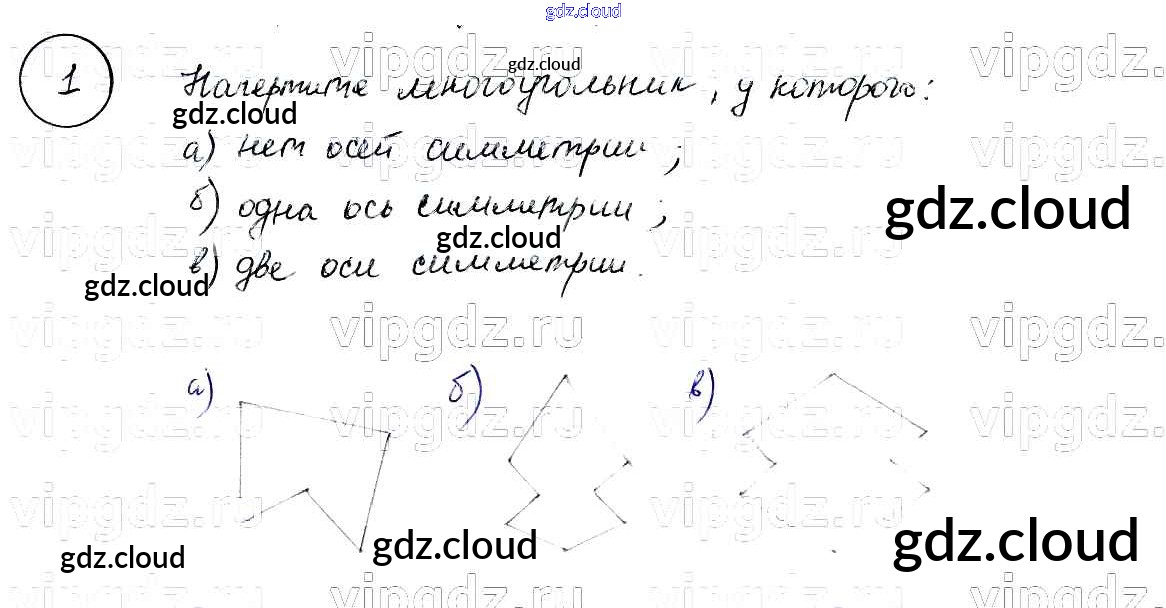 gdz.cloud
1 Начертите многоугольник, у которого:
gdz.cloud
gdz.cloud
а) нет осей симметрии;
б) одна ось симметрии;
gdz.cloud
gdz.cloud
в) две оси симметрии.
gdz.cloud
а) б) в)
gdz.cloud
gdz.cloud
gdz.cloud
vipgdz.ru vipgdz.ru vipgdz.ru vipgdz.ru